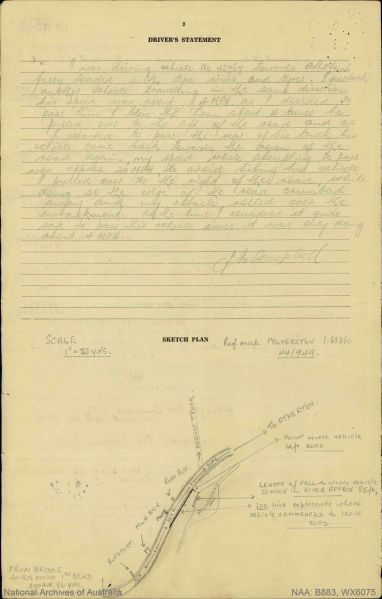 2
DRIVER'S STATEMENT
I was driving vehicle No 45969 towards Atherton
fully loaded with tyre rims and tyres. I overtook
another vehicle travelling in the same direction
his speed was about 4 MPH as I decided to
pass him I blew the horn about 4 times he
pulled over to the left of the road and as
I started to pass the rear of his truck his
vehicle came back towards the crown of the
road again, my speed while attempting to pass
was approx 20 MPH. To avoid hitting his vehicle
I pulled over to the right of the road, while
doing so the edge of the road crumbled
away and my vehicle rolled over the
embankment. At the time I considered it quite
safe to pass his vehicle since it was only doing
about 4 MPH.
Campbell
SCALE
1" = 25 yds.
SKETCH PLAN
Ref map PALMERSTON 1:63360
441949.
BARRON TRACK
TO ATHERTON.
POINT where vehicle
left ROAD
LENGTH of FALL to where vehicle
landed in RIVER APPROX 85 ft.
INK line represents where
vehicle commenced to leave
ROAD.
FROM BRIDGE
to this point 1st BEND
APPROX 86 yds.
National Archives of Australia
NAA: B883, WX6075